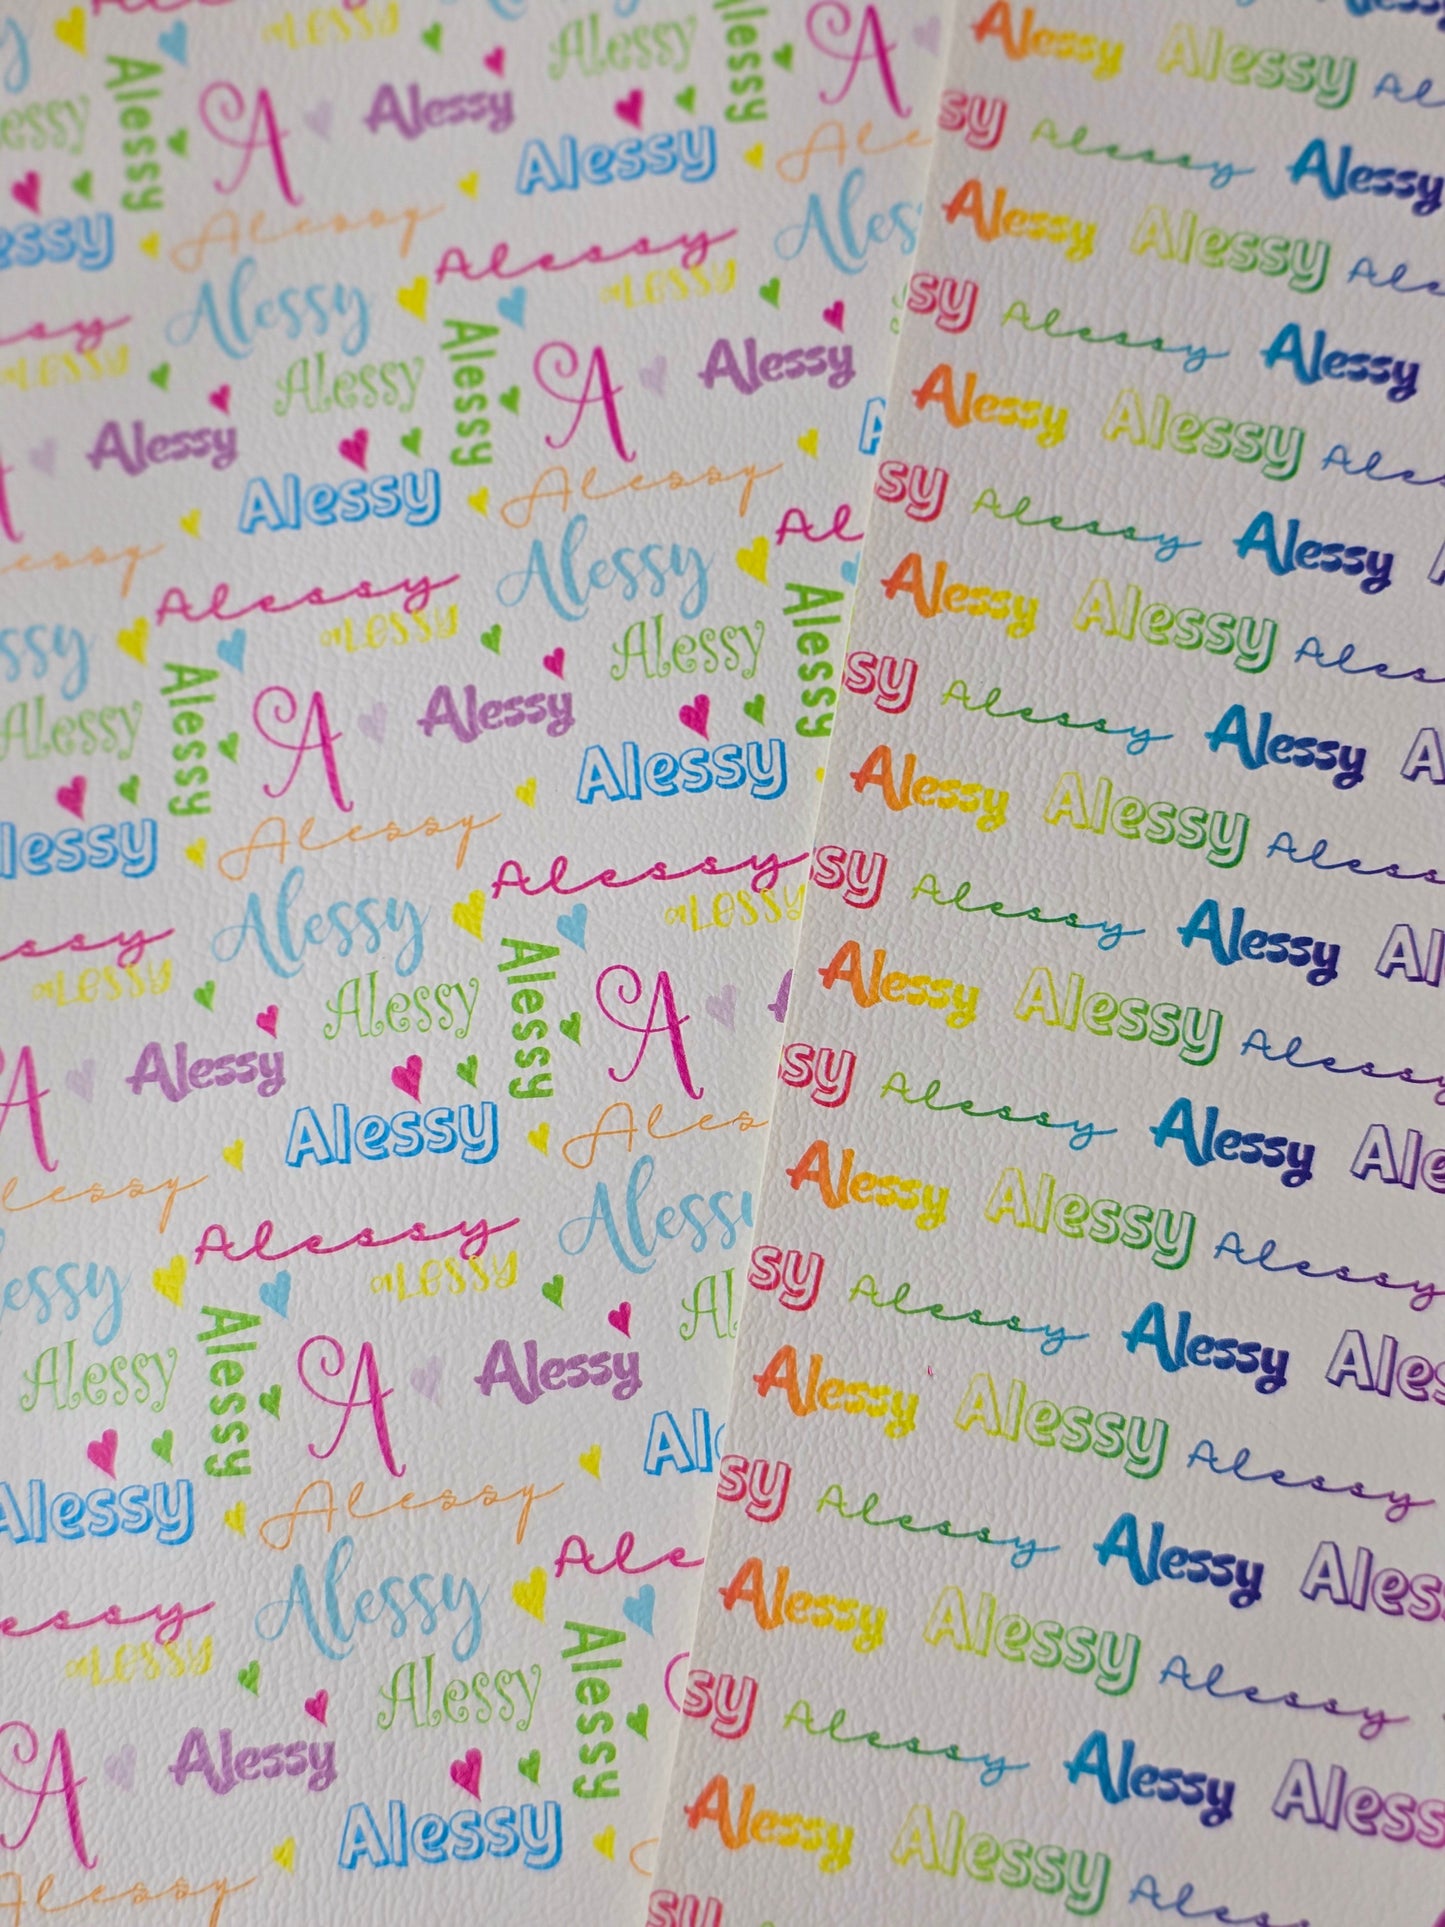 aLessy Alessy
Alessy A Alessy Alessy
Alessy
Alessy Alessy
Alessy aLessy
Alessy Alessy A Alessy
Alessy Alessy Alessy
Alessy Alessy
aLessy Alessy Alessy
Alessy A Alessy
Alessy Alessy
Alessy Alessy
aLessy
Alessy Alessy A
Alessy Alessy
Alessy
Alessy aLessy
Alessy Alessy A Alessy
Alessy Alessy
Alessy
aLessy Alessy Alessy
A Alessy
Alessy
Alessy
Alessy Alessy
sy Alessy Alessy
Alessy Alessy
sy Alessy Alessy
Alessy Alessy
sy Alessy Alessy
Alessy Alessy
sy Alessy Alessy
Alessy Alessy
sy Alessy Alessy
Alessy Alessy
sy Alessy Alessy
Alessy Alessy Alessy
sy Alessy Alessy
Alessy Alessy Alessy
sy Alessy Alessy
Alessy Alessy Alessy
sy Alessy Alessy
Alessy Alessy
sy